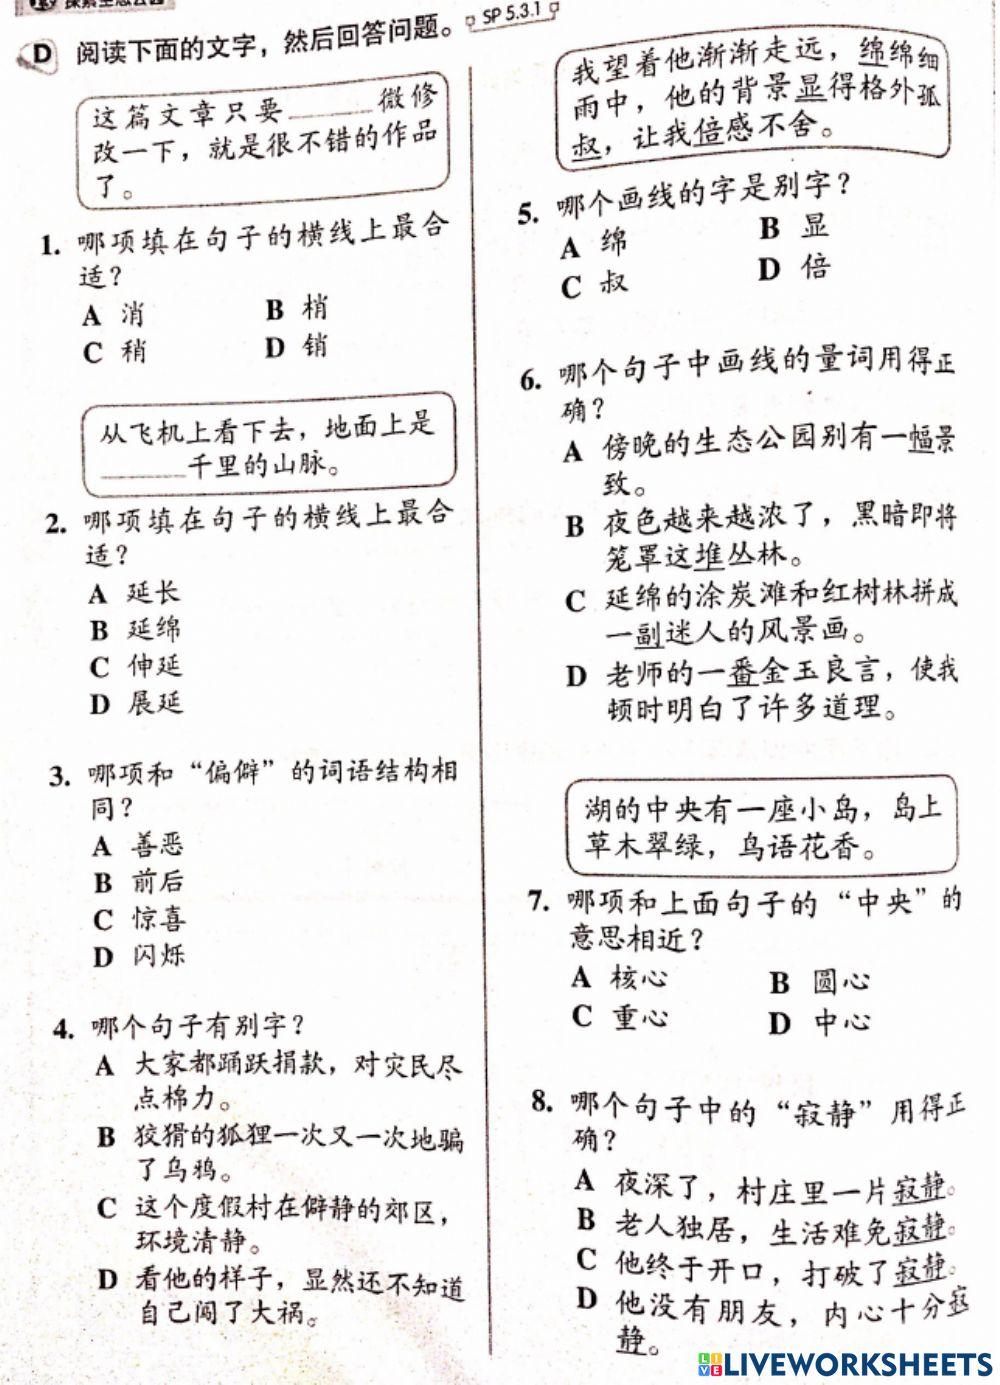 D 阅读下面的文字，然后回答问题。 SP 5.3.1
这篇文章只要______微修
改一下，就是很不错的作品
了。
1. 哪项填在句子的横线上最合
适？
A 消 B 梢
C 稍 D 销
从飞机上看下去，地面上是
______千里的山脉。
2. 哪项填在句子的横线上最合
适？
A 延长
B 延绵
C 伸延
D 展延
3. 哪项和“偏僻”的词语结构相
同？
A 善恶
B 前后
C 惊喜
D 闪烁
4. 哪个句子有别字？
A 大家都踊跃捐款，对灾民尽
点棉力。
B 狡猾的狐狸一次又一次地骗
了乌鸦。
C 这个度假村在僻静的郊区，
环境清静。
D 看他的样子，显然还不知道
自己闯了大祸。
我望着他渐渐走远，绵绵细
雨中，他的背景显得格外孤
叔，让我倍感不舍。
5. 哪个画线的字是别字？
A 绵 B 显
C 叔 D 倍
6. 哪个句子中画线的量词用得正
确？
A 傍晚的生态公园别有一幅景
致。
B 夜色越来越浓了，黑暗即将
笼罩这堆丛林。
C 延绵的涂炭滩和红树林拼成
一副迷人的风景画。
D 老师的一番金玉良言，使我
顿时明白了许多道理。
湖的中央有一座小岛，岛上
草木翠绿，鸟语花香。
7. 哪项和上面句子的“中央”的
意思相近？
A 核心 B 圆心
C 重心 D 中心
8. 哪个句子中的“寂静”用得正
确？
A 夜深了，村庄里一片寂静。
B 老人独居，生活难免寂静。
C 他终于开口，打破了寂静。
D 他没有朋友，内心十分寂
静。
LIVEWORKSHEETS